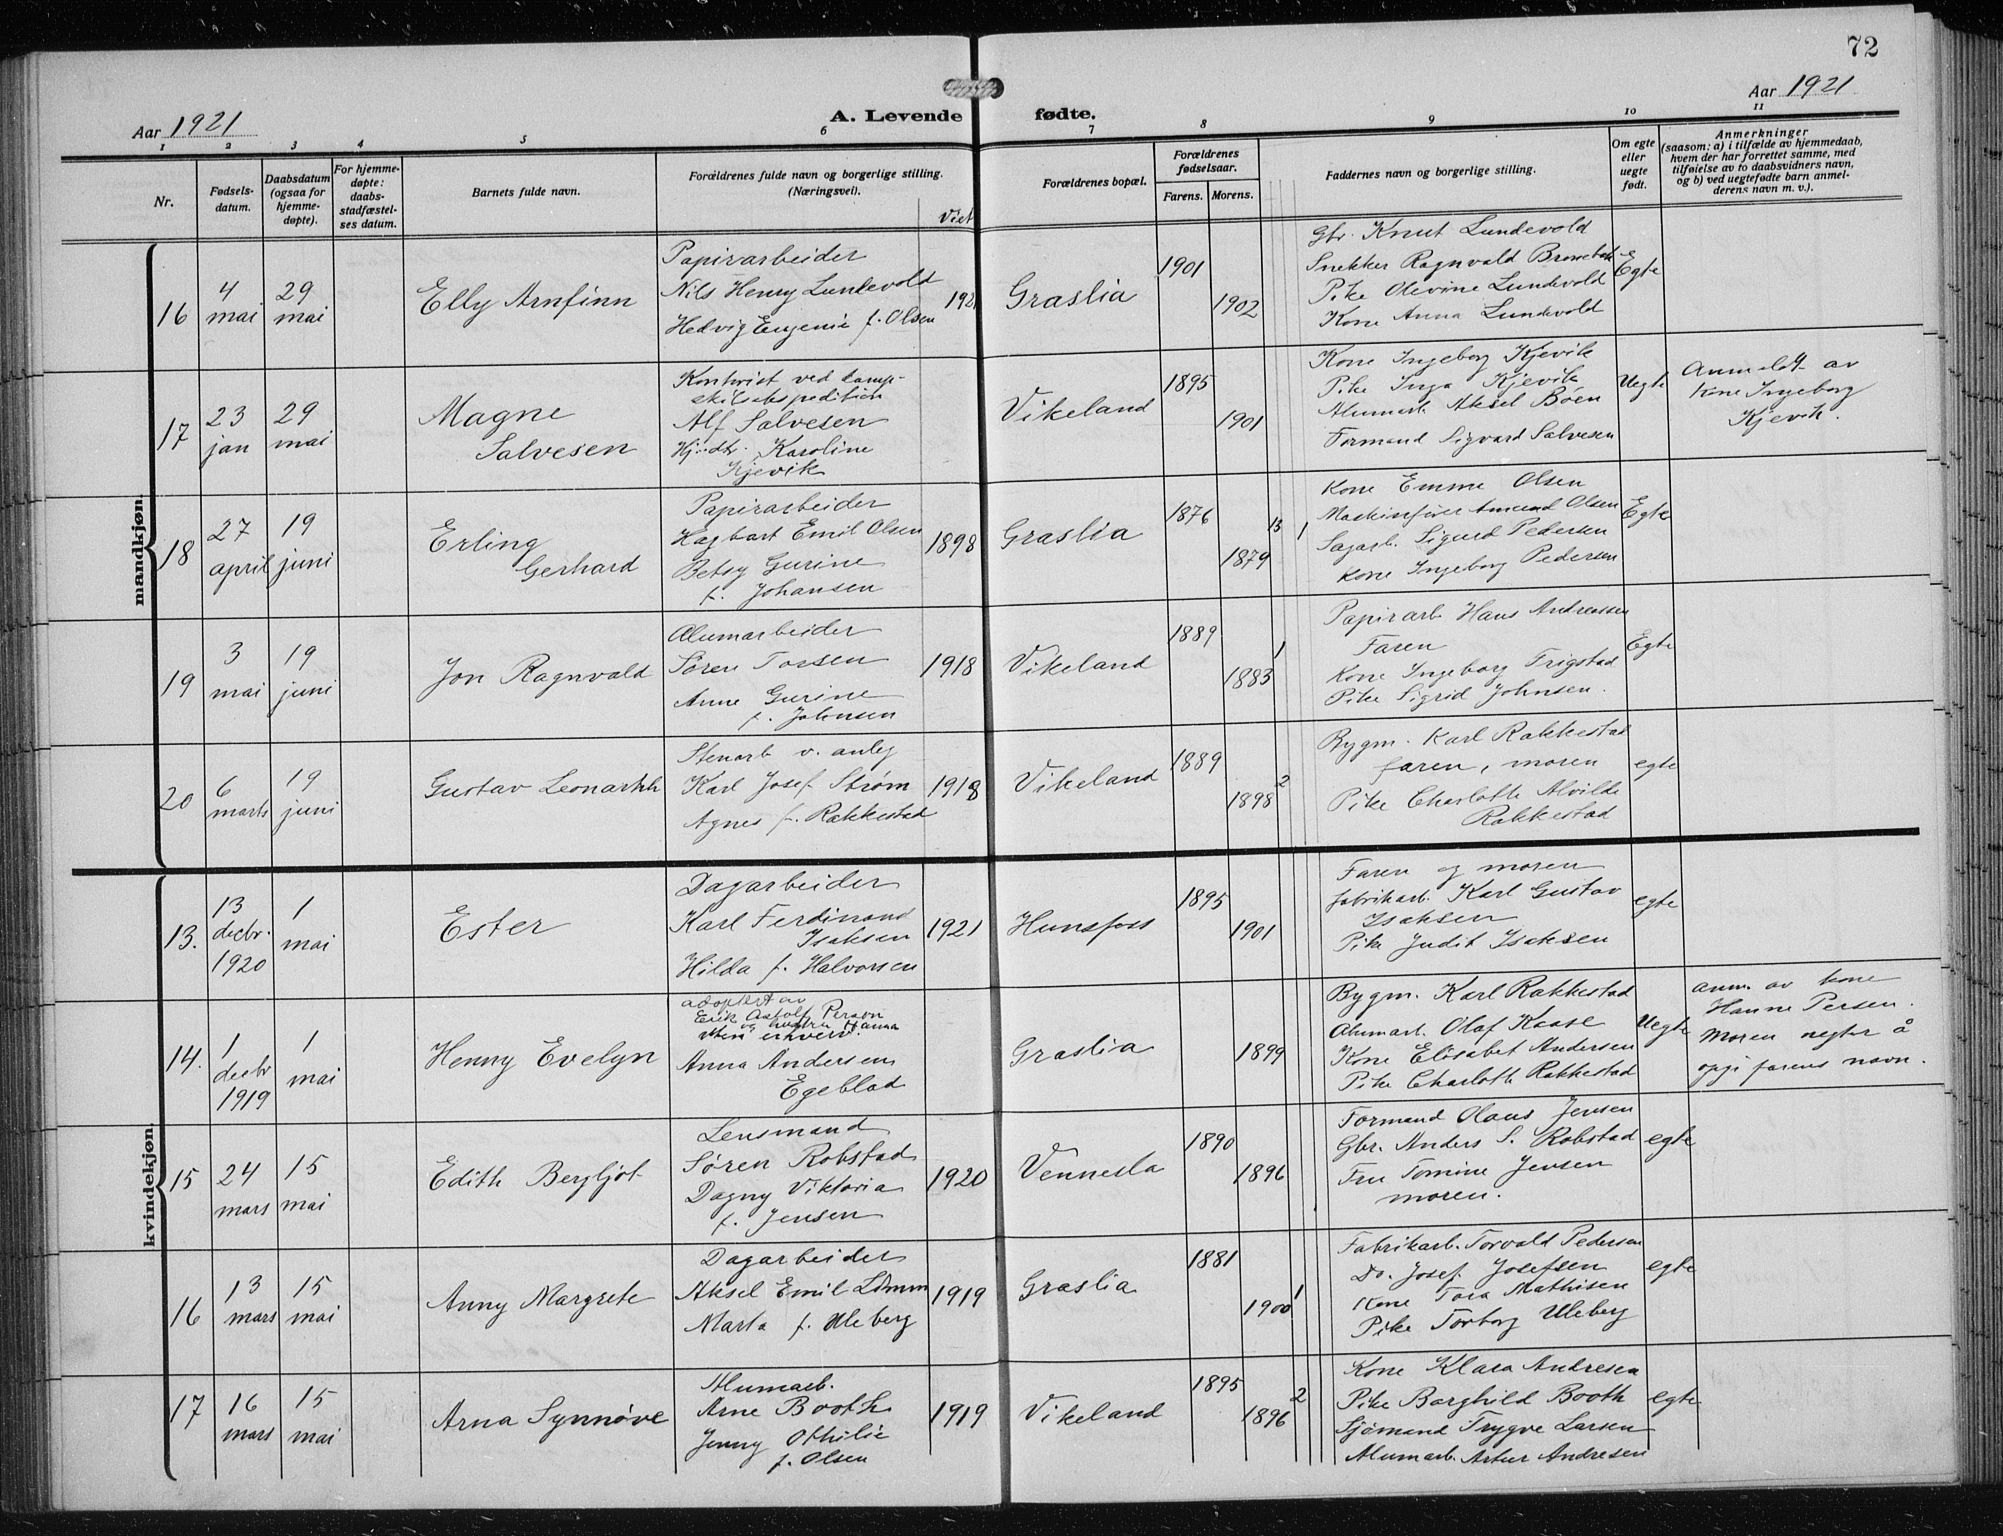 72
Aar 1921
A. Levende fødte.
Aar 1921
1 2 3 4 5 6 7 8 9 10 11
Nr.
Fødsels-
datum.
Daabsdatum
(ogsaa for
hjemme-
døpte).
For hjemme-
døpte:
daabs-
stadfæstel-
ses datum.
Barnets fulde navn.
Forældrenes fulde navn og borgerlige stilling.
(Næringsvei).
Viet
Forældrenes bopæl.
Forældrenes
fødselsaar.
Farens. Morens.
Faddernes navn og borgerlige stilling.
Om egte
eller
uegte
født.
Anmerkninger
(saasom: a) i tilfælde av hjemmedaab,
hvem der har forrettet samme, med
tilføielse av to daabsvidners navn,
og b) ved uegtefødte barn anmel-
derens navn m. v.).
mandkjøn.
16
4
mai
29
mai
Elly Arnfinn
Papirarbeider
Nils Henry Lundevold
Hedvig Eugenie f. Olsen
1921
Graslia
1901
1902
Gbr. Knut Lundevold
Snekker Ragnvald
Pike Olevine Lundevold
Kone Anna Lundevold
Egte
17
23
jan
29
mai
Magne
Salvesen
Kontorist ved damp-
skibsekspedition
Alf Salvesen
Karoline
Kjevik
Vikeland
1895
1901
Kone Ingeborg Kjevik
Pike Inga Kjevik
Alumarb. Aksel Boen
Formand Sigvard Salvesen
Uegte
Anmeldt av
Kone Ingeborg
Kjevik.
18
27
april
19
juni
Erling
Gerhard
Papirarbeider
Hagbart Emil Olsen
Betsy Gurine
f. Johansen
1898
Graslia
1876
1879
13
1
Kone Emme Olsen
Maskinfører Amund Olsen
Sagarb. Sigurd Pedersen
Kone Ingeborg Pedersen
Egte
19
3
mai
19
juni
Jon Ragnvald
Alumarbeider
Søren Torsen
Anne Gurine
f. Johnsen
1918
Vikeland
1889
1883
1
Papirarb Hans Andreassen
Faren
Kone Ingeborg Frigstad
Pike Sigrid Johnsen.
Egte
20
6
marts
19
juni
Gustav
Stenarb v. anleg
Karl Josef Strøm
Agnes f. Rakkestad
1918
Vikeland
1889
1898
2
Bygm. Karl Rakkestad
faren, moren
Pike Charlotte Alvilde
Rakkestad
egte
kvindekjøn.
13.
13
decbr.
1920
1
mai
Ester
Dagarbeider
Karl Ferdinand
Isaksen
Hilda f. Halvorsen
1921
Hunsfoss
1895
1901
Faren og moren
fabrikarb. Karl Gustav
Isaksen
Pike Judit Isaksen
egte
14.
1
decbr
1919
1
mai
Henny Evelyn
adoptert av
Erik Person
og hustru Hanna
uten erhverv.
Anna Andersen
Egeblad
Graslia
1899
Bygm. Karl Rakkestad
Alumarb. Olaf Kaase
Kone Elisabet Andersen
Pike Charlotte Rakkestad
Uegte
anm. av kone
Hanne Persen.
Moren negter å
opgi farens navn.
15
24
mars
15
mai
Edith Bergljot
Lensmand
Søren Robstad
Dagny Viktoria
f. Jensen
1920
Vennesla
1890
1896
Formand Olaus Jensen
Gbr. Anders S. Robstad
Fru Tomine Jensen
moren.
egte
16
13
mars
15
mai
Anny Margrete
Dagarbeider
Aksel Emil
Marta f. Uleberg
1919
Graslia
1881
1900
1
Fabrikarb. Torvald Pedersen
Do. Josef Josefsen
Kone Tora Mathisen
Pike Torborg Uleberg
egte
17
16
mars
15
mai
Arna Synnøve
Alumarb.
Arne Booth
Jenny Othilie
f. Olsen
1919
Vikeland
1895
1896
2
Kone Klara Andresen
Pike Borghild Booth
Sjømand Trygve Larsen
Alumarb. Artur Andresen
egte